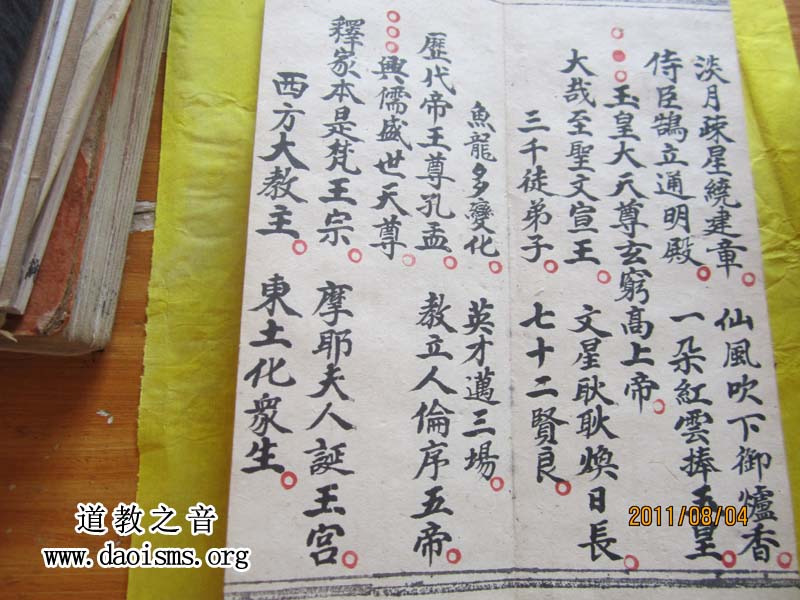 淡月疎星繞建章。仙風吹下御爐香。
侍臣鵠立通明殿。一朵紅雲捧玉皇。
○○○玉皇大天尊玄穹高上帝。
大哉至聖文宣王。文星耿耿煥日長。
三千徒弟子。七十二賢良。
魚龍多變化。英才邁三場。
歷代帝王尊孔孟。教立人倫序五帝。
○○○興儒盛世天尊。
釋家本是梵王宗。摩耶夫人誕王宮。
西方大教主。東土化衆生。
2011/08/04
道教之音
www.daoisms.org